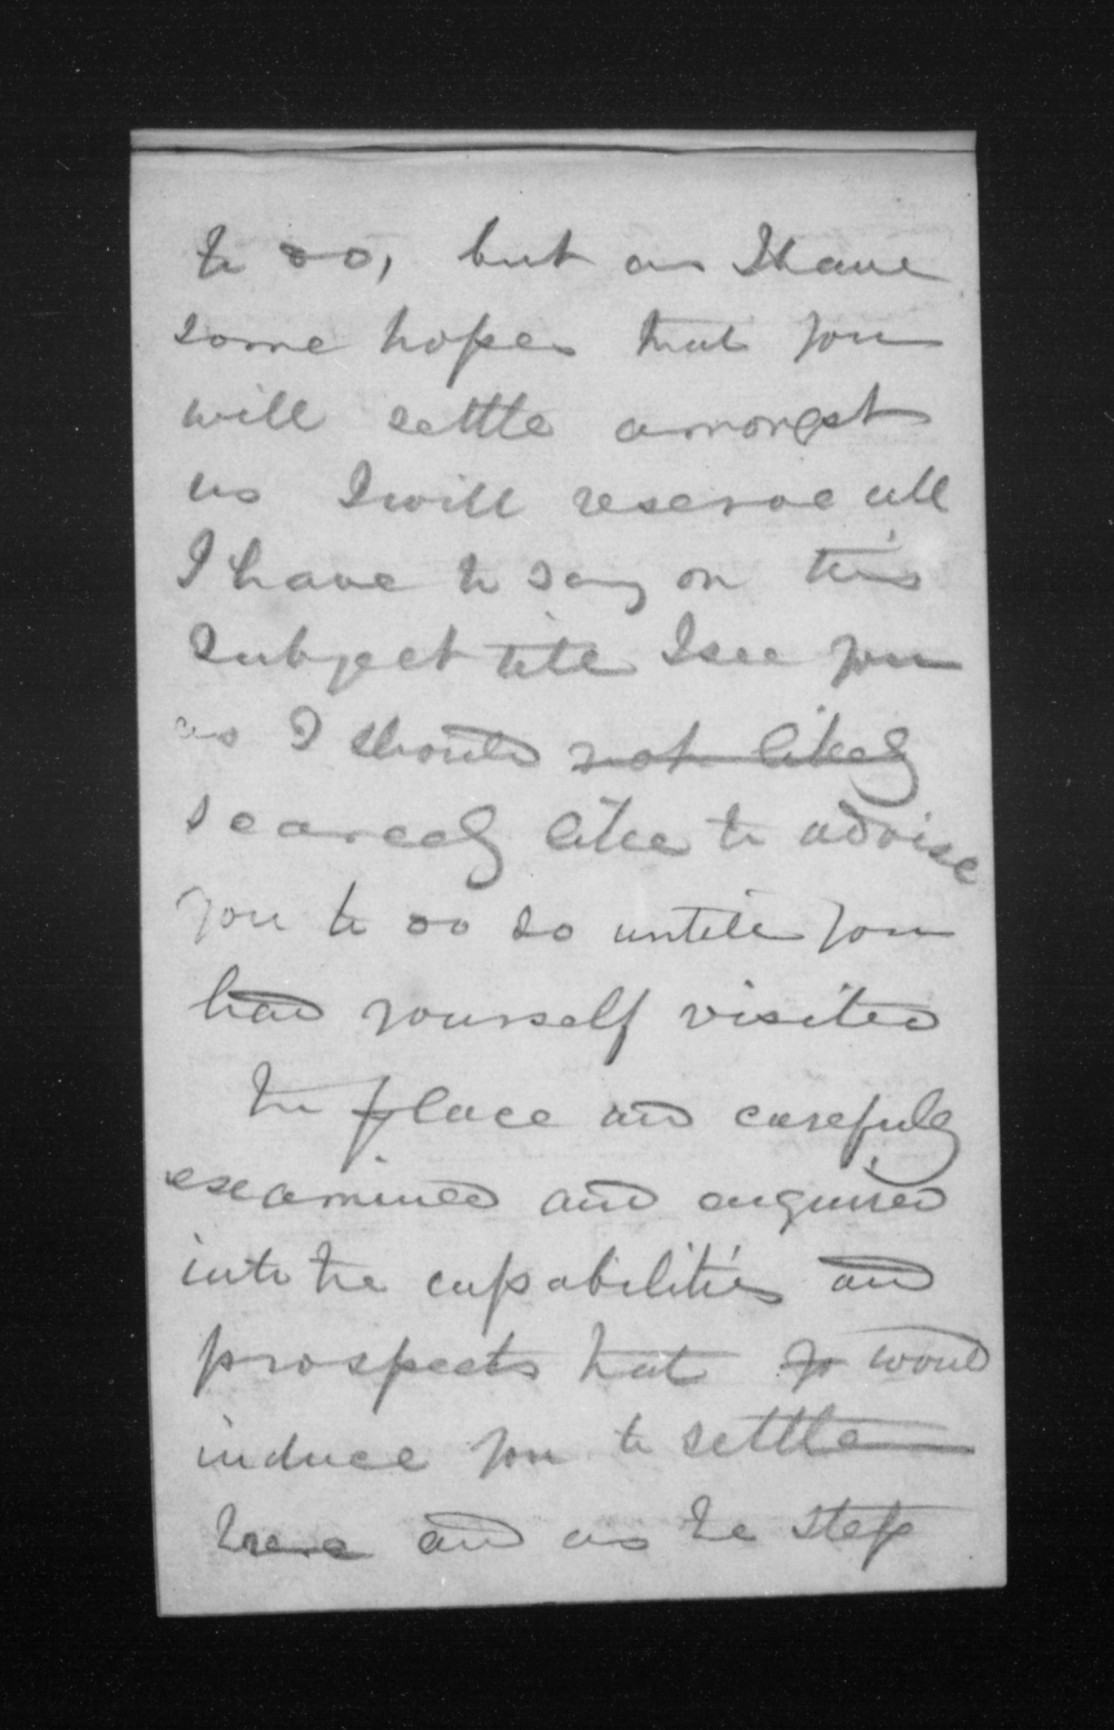 to do, but as I have
some hopes that you
will settle amongst
us I will reserve all
I have to say on this
subject till I see you
as I should not likely
scarcely like to advise
you to do so untill you
had yourself visited
the place and carefuly
examined and enquired
into the capabilities and
prospects that would
induce you to settle
here and as the step